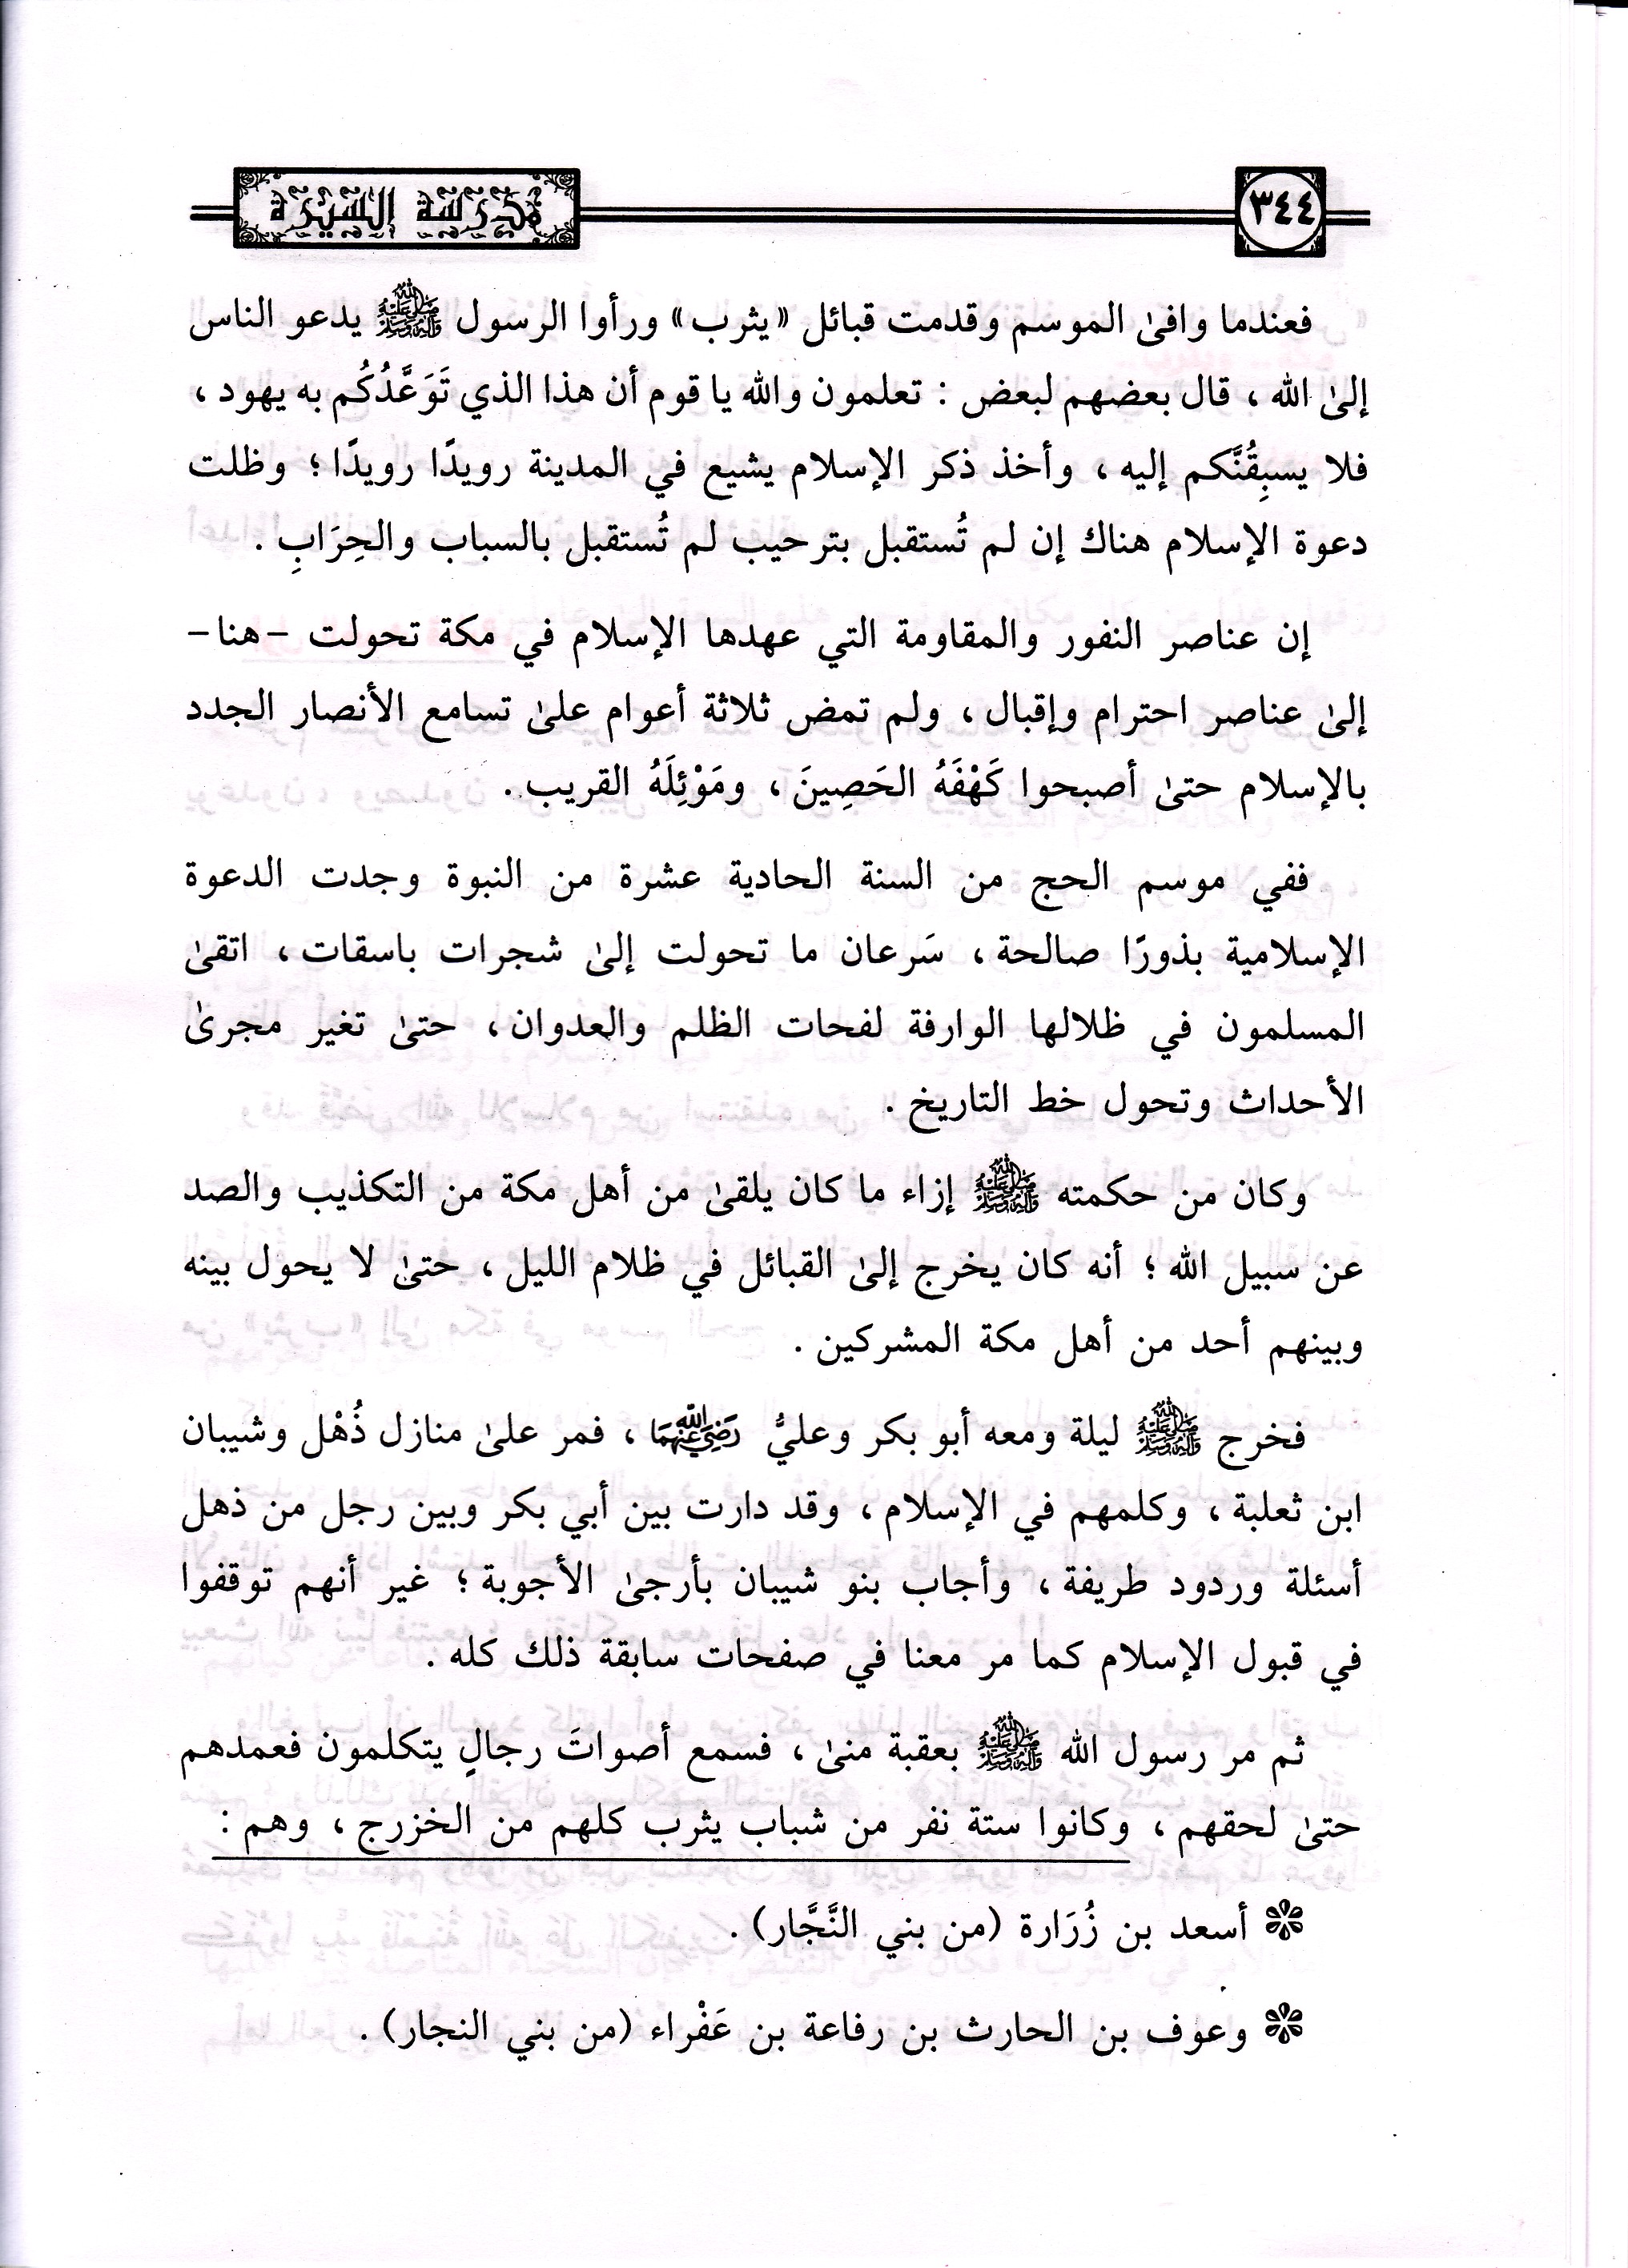 ٣٤٤
مدرسة السيرة
فعندما وافىٰ الموسم وقدمت قبائل «يثرب» ورأوا الرسول ﷺ يدعو الناس
إلىٰ الله ، قال بعضهم لبعض : تعلمون والله يا قوم أن هذا الذي تَوَعَّدُكُم به يهود ،
فلا يسبِقُنَّكم إليه ، وأخذ ذكر الإسلام يشيع في المدينة رويدًا رويدًا ؛ وظلت
دعوة الإسلام هناك إن لم تُستقبل بترحيب لم تُستقبل بالسباب والحِرَابِ .
إن عناصر النفور والمقاومة التي عهدها الإسلام في مكة تحولت -هنا-
إلىٰ عناصر احترام وإقبال ، ولم تمض ثلاثة أعوام علىٰ تسامع الأنصار الجدد
بالإسلام حتىٰ أصبحوا كَهْفَهُ الحَصِينَ ، ومَوْئِلَهُ القريب .
ففي موسم الحج من السنة الحادية عشرة من النبوة وجدت الدعوة
الإسلامية بذورًا صالحة ، سَرعان ما تحولت إلىٰ شجرات باسقات ، اتقىٰ
المسلمون في ظلالها الوارفة لفحات الظلم والعدوان ، حتىٰ تغير مجرىٰ
الأحداث وتحول خط التاريخ .
وكان من حكمته ﷺ إزاء ما كان يلقىٰ من أهل مكة من التكذيب والصد
عن سبيل الله ؛ أنه كان يخرج إلىٰ القبائل في ظلام الليل ، حتىٰ لا يحول بينه
وبينهم أحد من أهل مكة المشركين .
فخرج ﷺ ليلة ومعه أبو بكر وعليُّ رضي الله عنهما ، فمر علىٰ منازل ذُهْل وشيبان
ابن ثعلبة ، وكلمهم في الإسلام ، وقد دارت بين أبي بكر وبين رجل من ذهل
أسئلة وردود طريفة ، وأجاب بنو شيبان بأرجىٰ الأجوبة ؛ غير أنهم توقفوا
في قبول الإسلام كما مر معنا في صفحات سابقة ذلك كله .
ثم مر رسول الله ﷺ بعقبة منىٰ ، فسمع أصواتَ رجالٍ يتكلمون فعمدهم
حتىٰ لحقهم ، وكانوا ستة نفر من شباب يثرب كلهم من الخزرج ، وهم :
❊ أسعد بن زُرَارة (من بني النَّجَّار) .
❊ وعوف بن الحارث بن رفاعة بن عَفْراء (من بني النجار) .